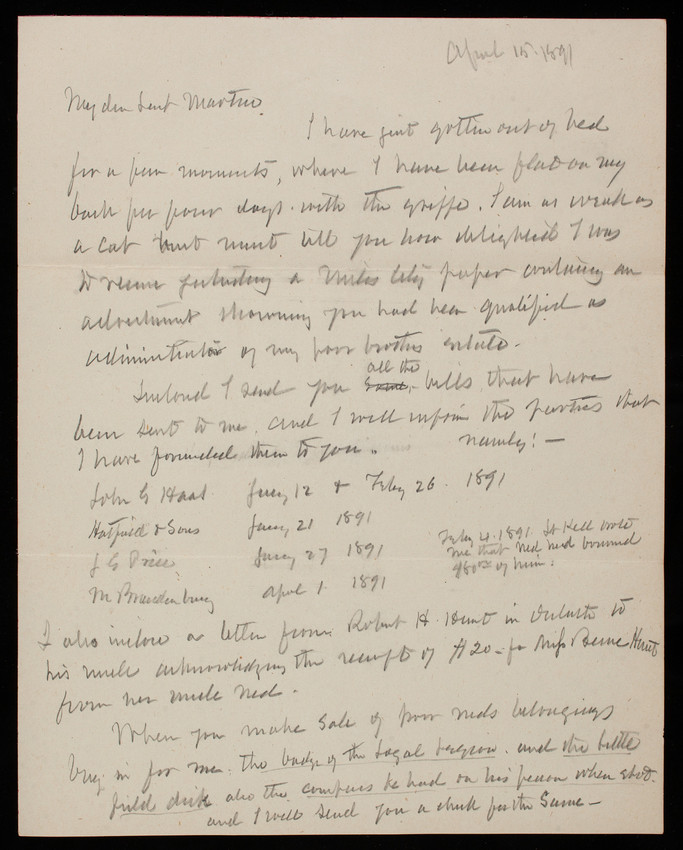 April 15. 1891
My dear Lieut Martin
I have just gotten out of bed
for a few moments, where I have been flat on my
back for four days. with the grippe. I am as weak as
a cat but must tell you how delighted I was
to receive yesterday a Miles City paper containing an
advertisment showing you had been qualified as
administrator of my poor brothers estate.
Inclosed I send you all the bills that have
been sent to me, and I will inform the parties that
I have forwarded them to you. namely! —
John G Haas Jany 12 & Feby 26. 1891
Hatfield & Sons Jany 21 1891
J G Price Jany 27 1891
M Brandenburg April 1 1891
Feby 4. 1891 Lt Kell wrote
me that Ned had borrowed
$80.00 of him.
I also inclose a letter from Robert H. Hunt in to
his uncle acknowledging the receipt of $20 - for Miss Hunt
from her uncle Ned.
When you make sale of poor neds belongings
buy in for me. the badge of the Loyal Legion. and the little
field desk also the compass he had on his person when shot.
and I will send you a check for the same —